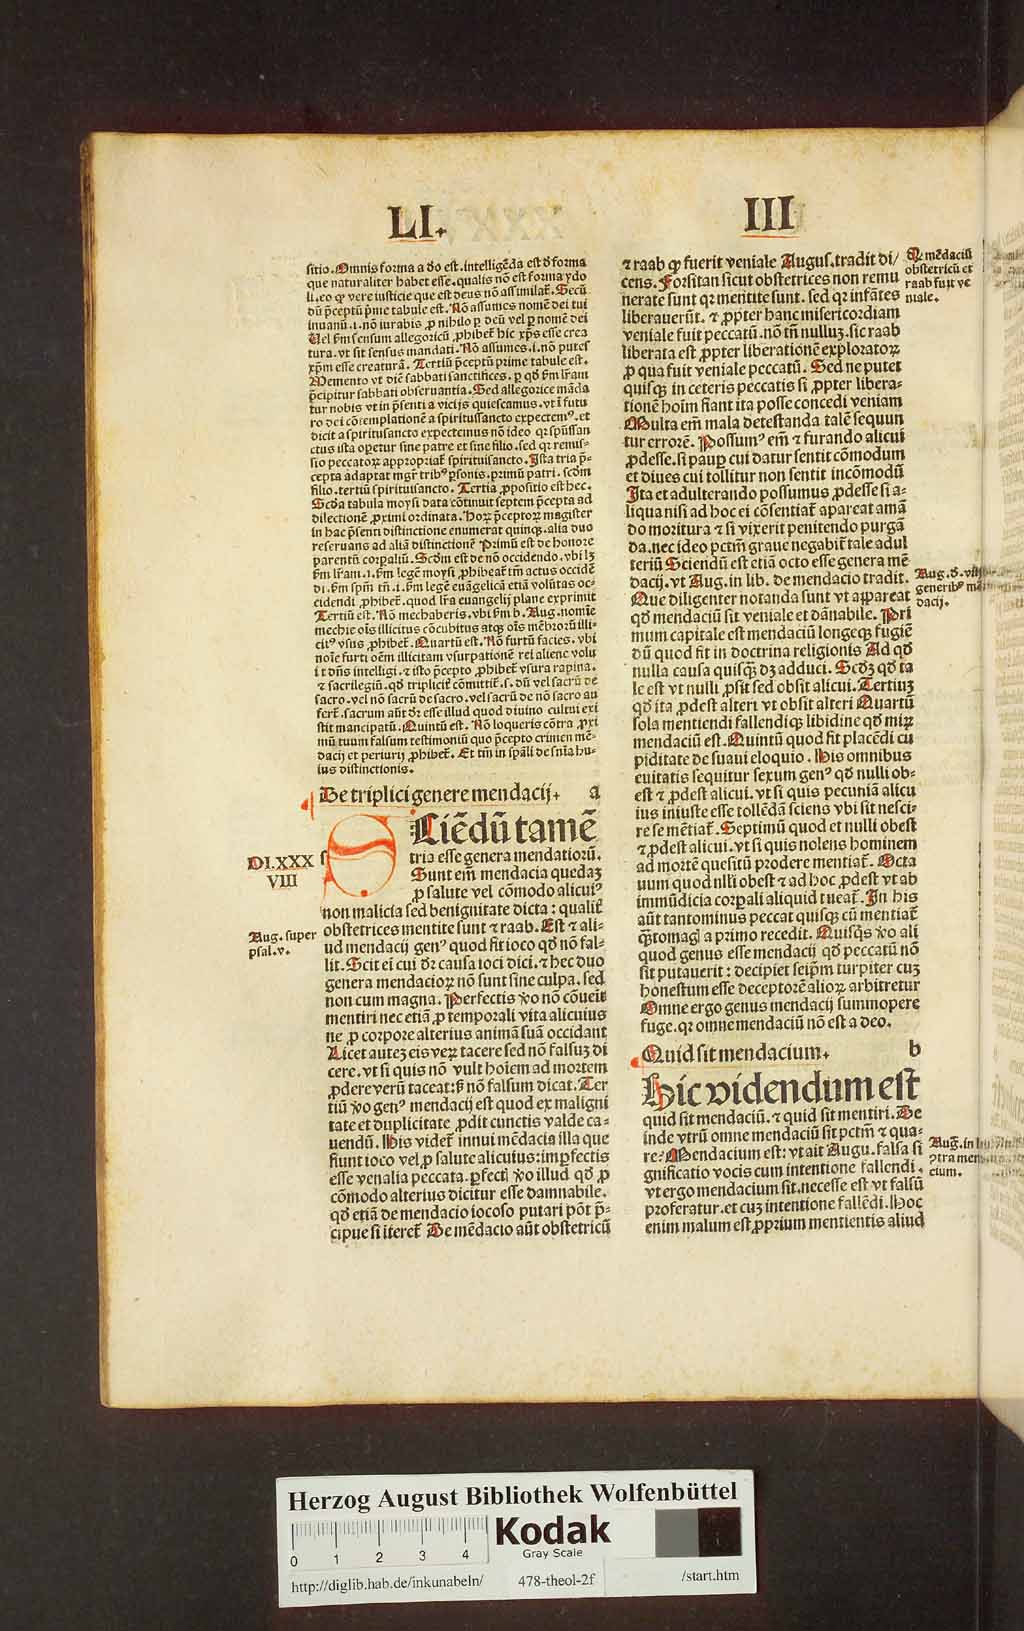 LI.
III
sitio. Omnis forma a deo est. intelligēda est de forma
que naturaliter habet esse. qualis nō est forma ydo
li. eo qp vere iusticie que est deus nō assimilat̄. Secū
dū p̄ceptū p̄me tabule est. Nō assumes nomē dei tui
inuanū .i. nō iurabis ꝓ nihilo per deū vel per nomē dei
Vel ẜm sensum allegoricū ꝓhibet̄ hic xp̄s esse crea
tura. vt sit sensus mandati. Nō assumes .i. nō putes
xp̄m esse creaturā. Tertiū p̄ceptū prime tabule est.
Memento vt diē sabbati sanctifices. per qd̓ ẜm l̓ram
p̄cipitur sabbati obseruantia. Sed allegorice māda
tur nobis vt in p̄senti a vicijs quiescamus. vt ī futu
ro dei cōtemplationē a spiritussancto expectem⁹. et
dicit a spiritusancto expectemus nō ideo qꝛ sp̄ussan
ctus ista operetur sine patre et sine filio. sed qꝛ remis-
sio peccatoꝝ appropriat̄ spirituisancto. Ista tria p̄-
cepta adaptat mgr̄ trib⁹ ꝑsonis. primū patri. scd̄m
filio. tertiū spirituisancto. Tertia ꝓpositio est hec.
Scd̄a tabula moysi data cōtinuit septem p̄cepta ad
dilectionē ꝓximi ordinata. Hoꝝ p̄ceptoꝝ magister
in hac p̄senti distinctione enumerat quinqꝫ. alia duo
reseruans ad aliā distinctionē Primū est de honore
parentū corpaliū. Scd̄m est de nō occidendo. vbi lꝫ
ẜm l̓ram .i. ẜm legē moysi ꝓhibeat̄ tm̄ actus occidē
di. ẜm sp̄m tn̄ .i. ẜm legē euāgelicā etiā volūtas oc-
cidendi ꝓhibet̄. quod l̓ra euangelij plane exprimit
Tertiū est. Nō mechaberis. vbi ẜm b. Aug. nomīe
mechie oīs illicitus cōcubitus atqꝫ oīs mēbroꝝū illi-
cit⁹ vsus ꝓhibet̄. Quartū est. Nō furtū facies. vbi
noīe furti oēm illicitam vsurpationē rei aliene volu
it dn̄s intelligi. ⁊ isto p̄cepto ꝓhibet̄ vsura rapina.
⁊ sacrilegiū. qd̓ triplicit̄ cōmittit̄ .s. dū vel sacrū de
sacro. vel nō sacrū de sacro. vel sacrū de nō sacro au
fert̄. sacrum aūt dr̄ esse illud quod diuino cultui exi
stit mancipatū. Quintū est. Nō loqueris cōtra ꝓxi
mū tuum falsum testimoniū quo p̄cepto crimen mē-
dacij et periurij ꝓhibet̄. Et tm̄ in sp̄ali de sn̄ia hu-
ius distinctionis.
De triplici genere mendacij. a
DI. XXX
VIII
Sciēdū tamē
tria esse genera mendatiorū.
Sunt em̄ mendacia quedaꝫ
ꝓ salute vel cōmodo alicui⁹
non malicia sed benignitate dicta: qualit̄
Aug. super
psal. v.
obstetrices mentite sunt ⁊ raab. Est ⁊ ali-
ud mendacij gen⁹ quod fit ioco qd̓ nō fal-
lit. Scit ei̓ cui dr̄ causa ioci dici. ⁊ hec duo
genera mendacioꝝ nō sunt sine culpa. sed
non cum magna. Perfectis v̓o nō cōueit̄
mentiri nec etiā ꝓ temporali vita alicuius
ne ꝓ corpore alterius animā suā occidant
Licet auteꝫ eis veꝝ tacere sed nō falsuꝫ di
cere. vt si quis nō vult hoīem ad mortem
ꝓdere verū taceat: sꝫ nō falsum dicat. Ter
tiū v̓o gen⁹ mendacij est quod ex maligni
tate et duplicitate ꝓdit cunctis valde ca-
uendū. His videt̄ innui mēdacia illa que
fiunt ioco vel ꝓ salute alicuius: imꝑfectis
esse venalia peccata. ꝑfectꝭ v̓o illud qd̓ ꝓ
cōmodo alterius dicitur esse damnabile.
qd̓ etiā de mendacio iocoso putari pōt p̄-
cipue si iteret̄ De mēdacio aūt obstetricū
⁊ raab qp fuerit veniale Augus. tradit di/
cens. Forsitan sicut obstetrices non remu
nerate sunt qꝛ mentite sunt. sed qꝛ infātes
liberauerūt. ⁊ ꝓpter hanc misericordiam
veniale fuit peccatū. nō tn̄ nulluꝫ. sic raab
liberata est ꝓpter liberationē exploratoꝝ
ꝓ qua fuit veniale peccatū. Sed ne putet
quisqꝫ in ceteris peccatis si ꝓpter libera-
tionē hoīm fiant ita posse concedi veniam
Multa em̄ mala detestanda talē sequun
tur errorē. Possum⁹ em̄ ⁊ furando alicui
ꝓdesse. si pauꝑ cui datur sentit cōmodum
et diues cui tollitur non sentit incōmodū
Ita et adulterando possumus ꝓdesse si a-
liqua nisi ad hoc ei cōsentiat̄ apareat amā
do moritura ⁊ si vixerit penitendo purgā
da. nec ideo pctm̄ graue negabit̄ tale adul
teriū Sciendū est etiā octo esse genera mē
dacij. vt Aug. in lib. de mendacio tradit.
Que diligenter notanda sunt vt appareat
qd̓ mendaciū sit veniale et dānabile. Pri
mum capitale est mendaciū longeqꝫ fugiē
dū quod fit in doctrina religionis Ad qd̓
nulla causa quisqꝫ dꝫ adduci. Scd̓ꝫ qd̓ ta
le est vt nulli ꝓsit sed obsit alicui. Tertiuꝫ
qd̓ ita ꝓdest alteri vt obsit alteri Quartū
sola mentiendi fallendiqꝫ libidine qd̓ miꝝ
mendaciū est. Quintū quod fit placēdi cu
piditate de suaui eloquio. His omnibus
euitatis sequitur sextum gen⁹ qd̓ nulli ob-
est ⁊ ꝓdest alicui. vt si quis pecuniā alicu
ius iniuste esse tollēdā sciens vbi sit nesci-
re se mētiat̄. Septimū quod et nulli obest
⁊ ꝓdest alicui. vt si quis nolens hominem
ad mortē quesitū prodere mentiat̄. Octa
uum quod nlli obest ⁊ ad hoc ꝓdest vt ab
immūdicia corꝑali aliquid tueat̄. In his
aūt tantominus peccat quisqꝫ cū mentiat̄
q̄ntomagꝭ a primo recedit. Quisqs̄ v̓o ali
quod genus esse mendacij qd̓ peccatū nō
sit putauerit: decipiet seip̄m turpiter cuꝫ
honestum esse deceptorē alioꝝ arbitretur
Omne ergo genus mendacij summopere
fuge. qꝛ omne mendaciū nō est a deo.
Quid sit mendacium. b
Hic videndum est
quid sit mendaciū. ⁊ quid sit mentiri. De
inde vtrū omne mendaciū sit pctm̄ ⁊ qua-
re: Mendacium est: vt ait Augu. falsa si
gnificatio vocis cum intentione fallendi.
vt ergo mendacium sit. necesse est vt falsū
proferatur. et cuꝫ intentione fallēdi. Hoc
enim malum est ꝓprium mentientis aliud
Q̓ mēdaciū
obstetricū et
raab fuit ve
niale.
Aug. d̓. viii
generib⁹ mē
dacij.
Aug. in
ꝯtra men
cium.
Herzog August Bibliothek Wolfenbüttel
0 1 2 3 4
Kodak
Gray Scale
http://diglib.hab.de/inkunabeln/ 478-theol-2f /start.htm